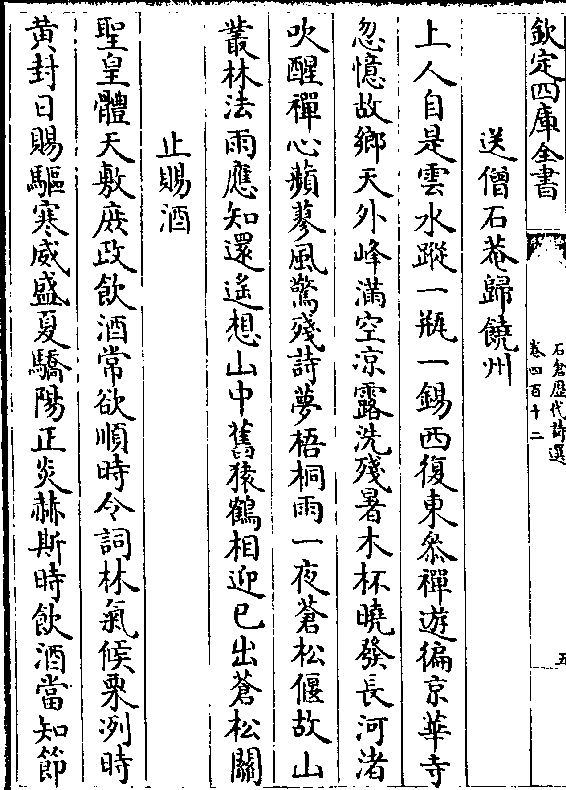 欽定四庫全書
石倉歴代詩選
卷四百十二
五
送僧石菴歸饒州
上人自是雲水蹤一瓶一錫西復東叅禪遊徧京華寺
忽憶故鄉天外峰滿空凉露洗殘暑木杯曉發長河渚
吹醒禪心蘋蓼風驚殘詩夢梧桐雨一夜蒼松偃故山
叢林法雨應知還遙想山中舊猿鶴相迎已出蒼松關
止賜酒
聖皇體天敷庶政飲酒常欲順時令詞林氣候栗冽時
黄封日賜驅寒威盛夏驕陽正炎赫斯時飲酒當知節